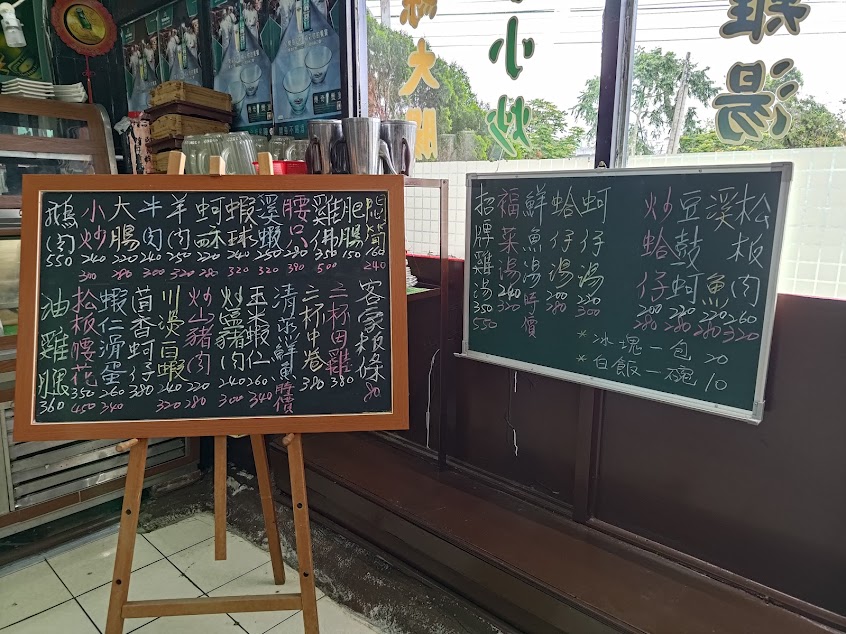 大腸
小炒
雞湯
鵝肉 550
小炒 240 300
大腸 220 280
牛肉 240 300
羊肉 250 320
蚵酥 220 280
蝦球 240 320
溪蝦 250 320
腰只 280 390
雞佛 350 500
肥腸 150
160 240
油雞腿 360
松板腰花 350 450
蝦仁滑蛋 260 340
茴香蚵仔 380
川淡白蝦 240 320
炒山豬肉 220 280
炒鹽豬肉 240 300
玉米蝦仁 260 340
清蒸鮮魚 時價
三杯中卷 380
三杯田雞 380
客家粄條 80
招牌雞湯 350 550
福菜湯 240 320
鮮魚湯 時價
蛤仔湯 200 280
蚵仔湯 220 300
炒蛤仔 200 280
豆鼓蚵 220 280
溪魚 220 320
松板肉 260 320
*冰塊一包 20
*白飯一碗 10